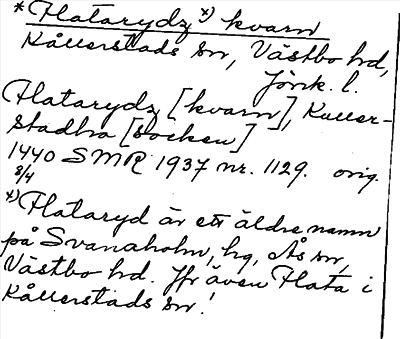 * Flatarydz *) kvarn
Kållerstads sn, Västbo hd,
Jönk. l.
Flatarydz [kvarn], Kuller-
stadha [socken]
1440 SMR 1937 nr. 1129. orig.
8/4
*) Flataryd är ett äldre namn
på Svanaholm, hg, Ås sn,
Västbo hd. Jfr även Flata i
Kållerstads sn!